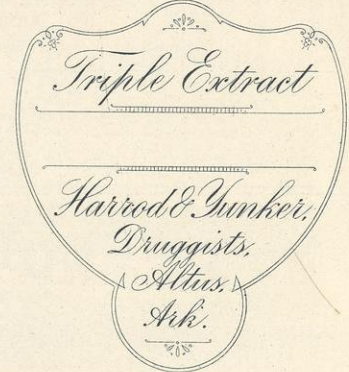 Triple Extract
Harrod & Yunker,
Druggists,
Altus,
Ark.